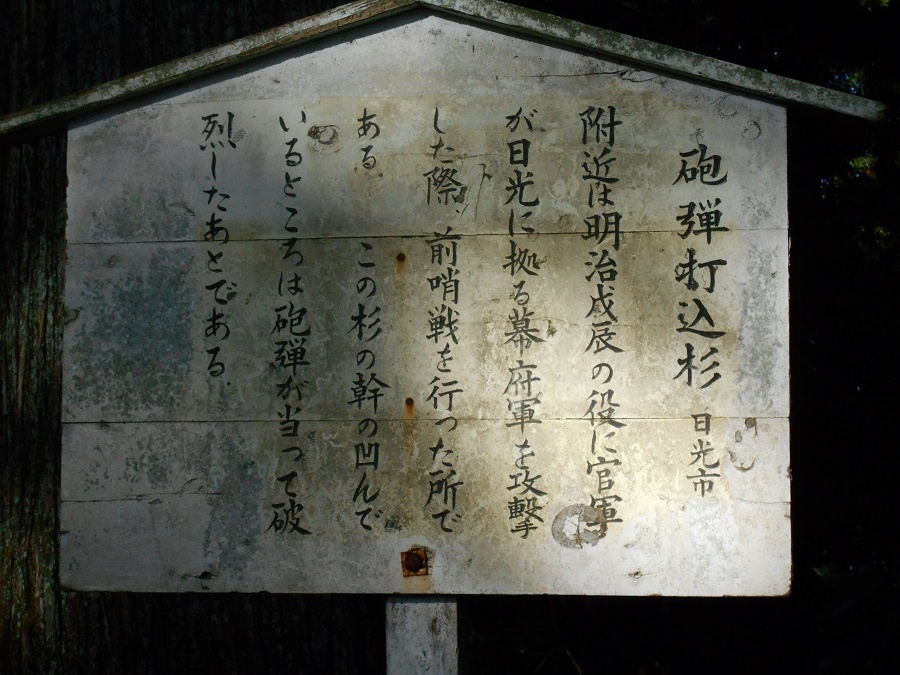 砲弾打込杉 日光市
附近は明治戊辰の役に官軍
が日光に拠る幕府軍を攻撃
した際、前哨戦を行った所で
ある、この杉の幹の凹んで
いるところは砲弾が当って破
烈したあとである。